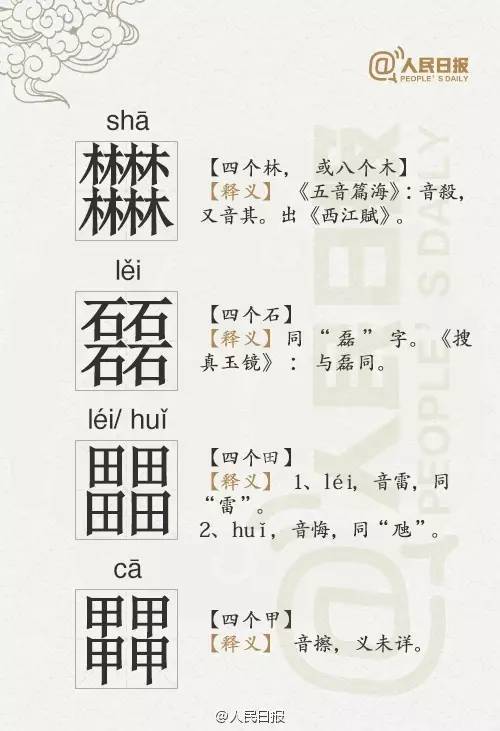 @人民日报
PEOPLE'S DAILY
shā
【四个林， 或八个木】
【释义】《五音篇海》：音殺，
又音其。出《西江賦》。
lěi
【四个石】
【释义】同 “磊” 字。《搜
真玉镜》： 与磊同。
léi/ huǐ
【四个田】
【释义】 1、léi，音雷，同
“雷”。
2、huǐ，音悔，同“”。
cā
【四个甲】
【释义】 音擦，义未详。
@人民日报